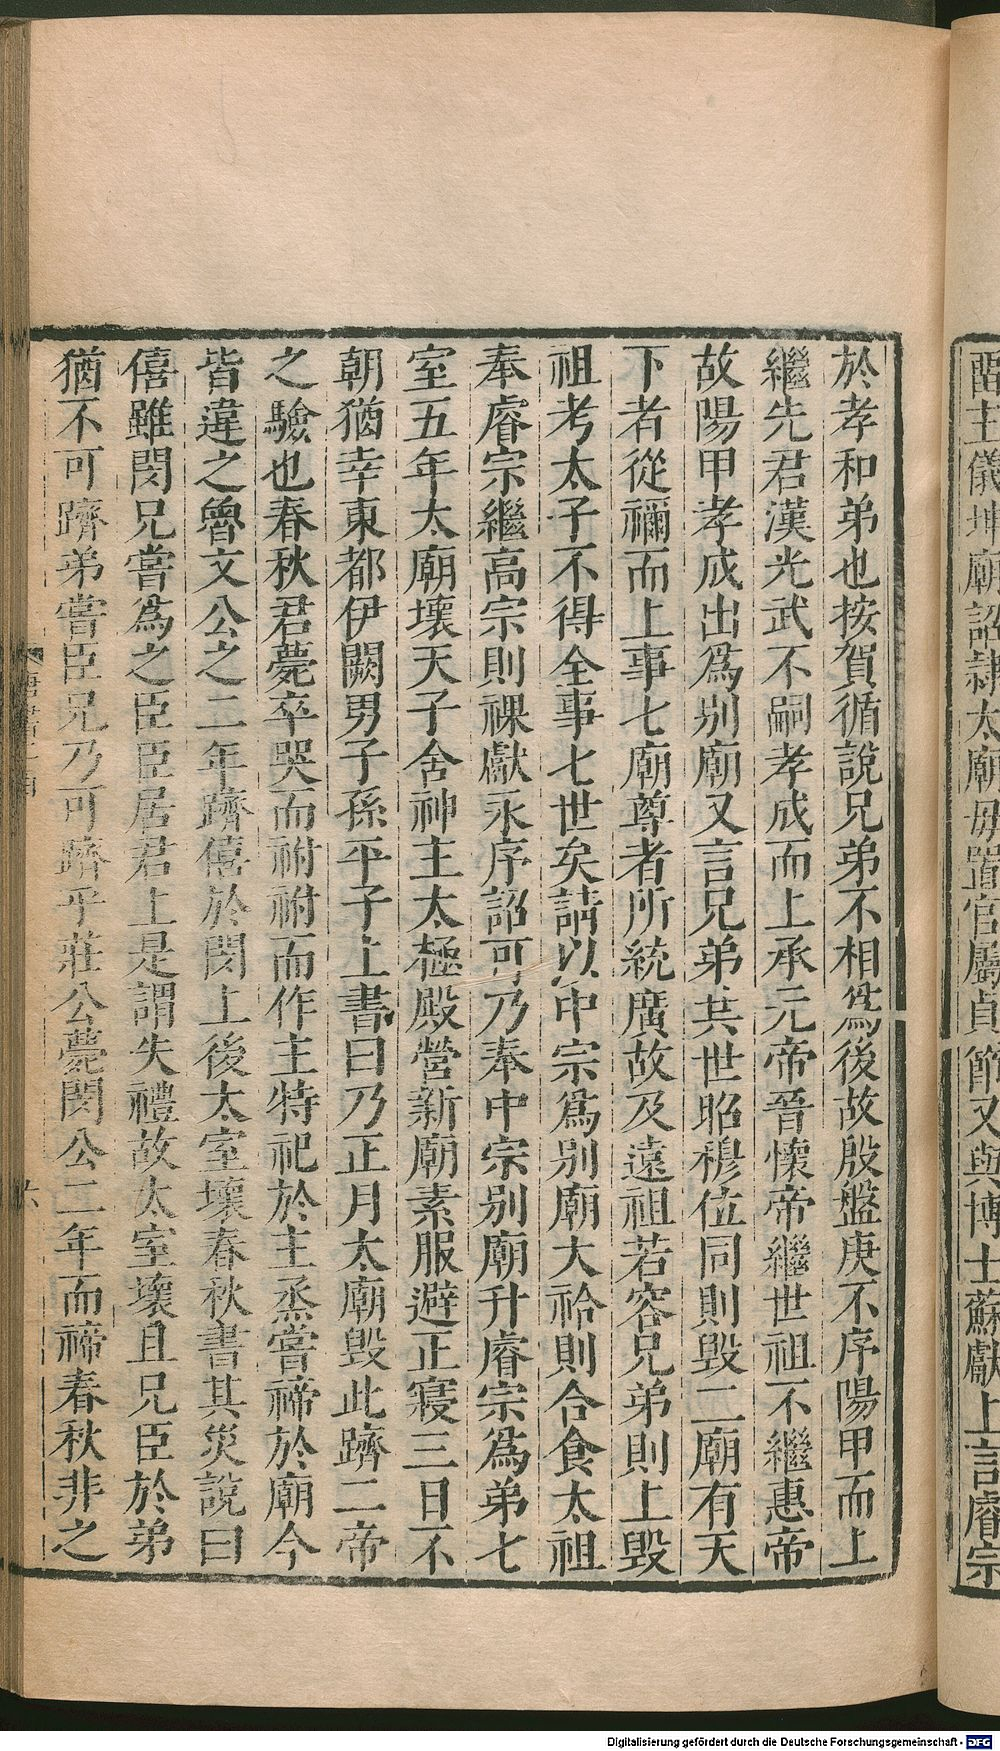 酣主儀坤廟詔隸太廟毋置官屬貞節又與博士蘇獻上言睿宗
於孝和弟也按賀循說兄弟不相爲後故殷盤庚不序陽甲而上
繼先君漢光武不嗣孝成而上承元帝晉懷帝繼世祖不繼惠帝
故陽甲孝成出爲別廟又言兄弟共世昭穆位同則毀二廟有天
下者從禰而上事七廟尊者所統廣故及遠祖若容兄弟則上毀
祖考太子不得全事七世矣請以中宗爲別廟大祫則合食太祖
奉睿宗繼高宗則祼獻永序詔可乃奉中宗別廟升睿宗爲弟七
室五年太廟壞天子舍神主太極殿營新廟素服避正寢三日不
朝猶幸東都伊闕男子孫平子上書曰乃正月太廟毀此躋二帝
之驗也春秋君薨卒哭而祔祔而作主特祀於主烝嘗禘於廟今
皆違之魯文公之二年躋僖於閔上後太室壞春秋書其災說曰
僖雖閔兄嘗爲之臣臣居君上是謂失禮故太室壞且兄臣於弟
猶不可躋弟嘗臣兄乃可躋乎莊公薨閔公二年而禘春秋非之
唐書
六
Digitalisierung gefördert durch die Deutsche Forschungsgemeinschaft - DFG